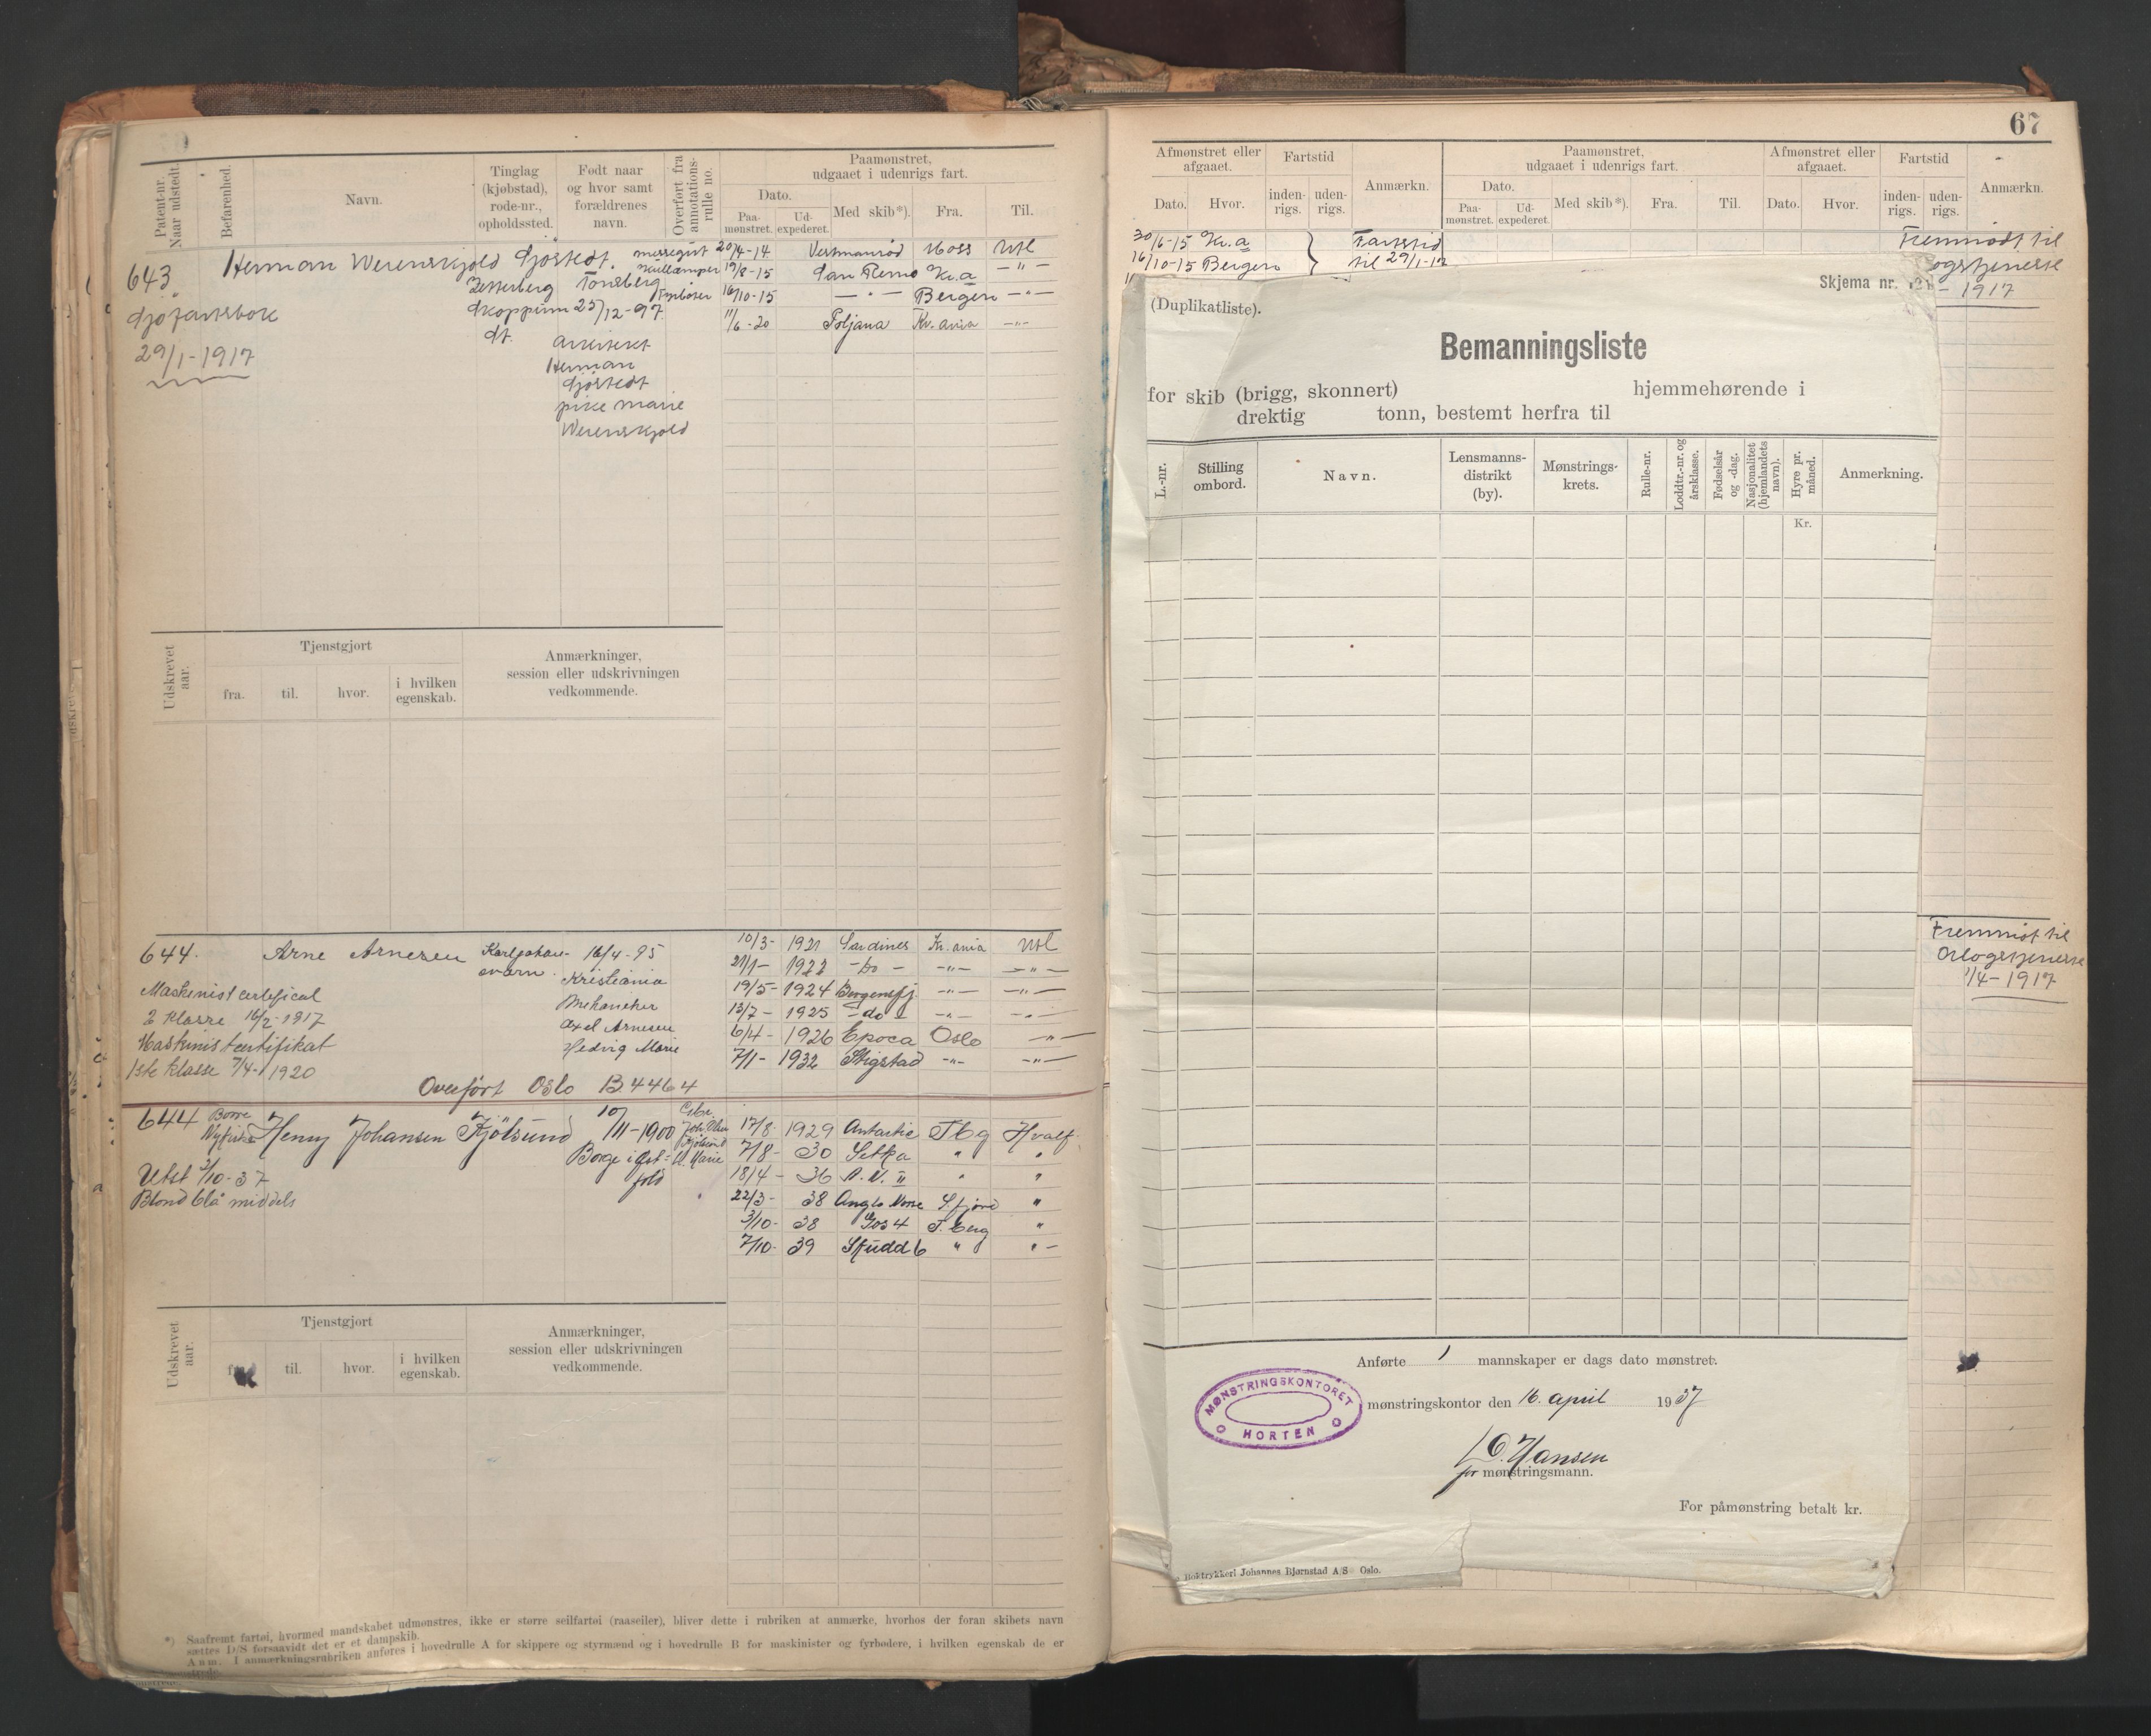 67
Patent-nr. Naar udstedt.
Befarenhed.
Navn.
Tinglag (kjøbstad), rode-nr., opholdssted.
Født naar og hvor samt forældrenes navn.
Overført fra annotations-rulle no.
Paamønstret, udgaaet i udenrigs fart.
Dato.
Paa-mønstret.
Ud-expederet.
Med skib*).
Fra.
Til.
643
Herman Werenskjold Gjöstedt.
Sjöfartsbok
29/1-1917
Skoppum
Tönsberg
25/12-97
Arkitekt
Herman
Gjöstedt
pike Marie
Werenskjold
messegut 20/4-14 Vestmanröd Moss Utl
Kullemper 19/8-15 San Remo Kr.a -"-
Fyrböter 16/10-15 -"- Bergen -"-
11/6-20 Kr.ania -"-
Udskrevet aar.
Tjenstgjort
fra.
til.
hvor.
i hvilken egenskab.
Anmærkninger, session eller udskrivningen vedkommende.
644.
Arne Arnesen
Karljohans-
værn.
16/4-95
Kristiania
Mekaniker
Axel Arnesen
Hedvig Marie
Maskinistcertifical
2 klasse 16/2-1917
Maskinistcertifikat
1ste klasse 7/4-1920
Overført Oslo B.4464
10/3- 1921 Sardines Kr.ania Utl
21/1- 1922 -Do- -"- -"-
19/5- 1924 Bergensfj. -"- -"-
13/7- 1925 -do- -"- -"-
6/4- 1926 Epoca Oslo -"-
7/1- 1932 Stigstad -"- -"-
644
Borre
Henny Johansen Kjölsund
10/11-1900
Borge i Øst-
fold
Utst 2/10-37
Blond blå middels
17/8- 1929 Antarctic Tbg Hvalf.
7/8- 30 Setka " "
18/4- 36 N.V. II " "
22/3- 38 Anglo Norse S.fjord "
3/10- 38 Gos 4 T.berg "
7/10- 39 Sfudd 6 " "-
Udskrevet aar.
Tjenstgjort
til.
hvor.
i hvilken egenskab.
Anmærkninger, session eller udskrivningen vedkommende.
*) Saafremt fartøi, hvormed mandskabet udmønstres, ikke er større seilfartøi (raaseiler), bliver dette i rubriken at anmærke, hvorhos der foran skibets navn
sættes D/S forsaavidt det er et dampskib.
Anm. I anmærkningsrubriken anføres i hovedrulle A for skippere og styrmænd og i hovedrulle B for maskinister og fyrbødere, i hvilken egenskab de er
Afmønstret eller afgaaet.
Dato.
Hvor.
Fartstid
inden-rigs.
uden-rigs.
Anmærkn.
Paamønstret, udgaaet i udenrigs fart.
Dato.
Paa-mønstret.
Ud-expederet.
Med skib*).
Fra.
Til.
Afmønstret eller afgaaet.
Dato.
Hvor.
Fartstid
inden-rigs.
uden-rigs.
Anmærkn.
30/6-15 Kr.a Fartstid
16/10-15 Bergen til 29/1-17
Fremmødt til
ogstjeneste
- 1917
Skjema nr.
(Duplikatliste).
Bemanningsliste
for skib (brigg, skonnert) hjemmehørende i
drektig tonn, bestemt herfra til
L.-nr.
Stilling ombord.
Navn.
Lensmanns-distrikt (by).
Mønstrings-krets.
Rulle-nr.
Loddtr.-nr. og årsklasse.
Fødselsår og -dag.
Nasjonalitet (hjemlandets navn).
Hyre pr. måned.
Anmerkning.
Kr.
Fremmöt til
Orlogstjeneste
1/4-1917
Anførte 1 mannskaper er dags dato mønstret.
MØNSTRINGSKONTORET
HORTEN
mønstringskontor den 16. april 1937
Hansen
for mønstringsmann.
For påmønstring betalt kr.
Boktrykkeri Johannes Bjørnstad A/S Oslo.